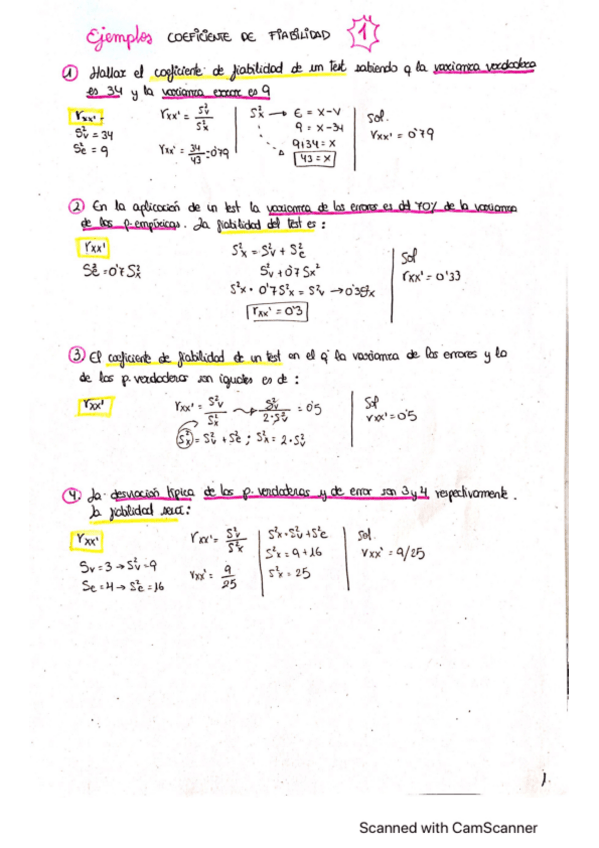 Ejemplos COEFICIENTE DE FIABILIDAD 1
1 Hallar el coeficiente de fiabilidad de un test sabiendo q la varianza verdadera
es 34 y la varianza error es 9
rxx' =
S²v = 34
S²e = 9
rxx' = S²v / S²x
rxx' = 34/43 = 0'79
S²x → E = X - V
9 = X - 34
9+34 = X
43 = X
Sol.
rxx' = 0'79
2 En la aplicación de un test la varianza de los errores es del 70% de la varianza
de las p. empíricas. La fiabilidad del test es:
rxx'
S²e = 0'7S²x
S²x = S²v + S²e
S²v + 0'7Sx²
S²x - 0'7S²x = S²v → 0'3S²x
rxx' = 0'3
Sol
rxx' = 0'33
3 El coeficiente de fiabilidad de un test en el q' la varianza de los errores y la
de las p. verdaderas son iguales es de:
rxx'
rxx' = S²v / S²x → S²v / 2·S²v = 0'5
S²x = S²v + S²e ; S²x = 2·S²v
Sol
rxx' = 0'5
4. La desviación típica de las p. verdaderas y de error son 3 y 4 respectivamente.
La fiabilidad será:
rxx'
Sv = 3 → S²v = 9
Se = 4 → S²e = 16
rxx' = S²v / S²x
rxx' = 9/25
S²x = S²v + S²e
S²x = 9 + 16
S²x = 25
Sol.
rxx' = 9/25
1.
Scanned with CamScanner